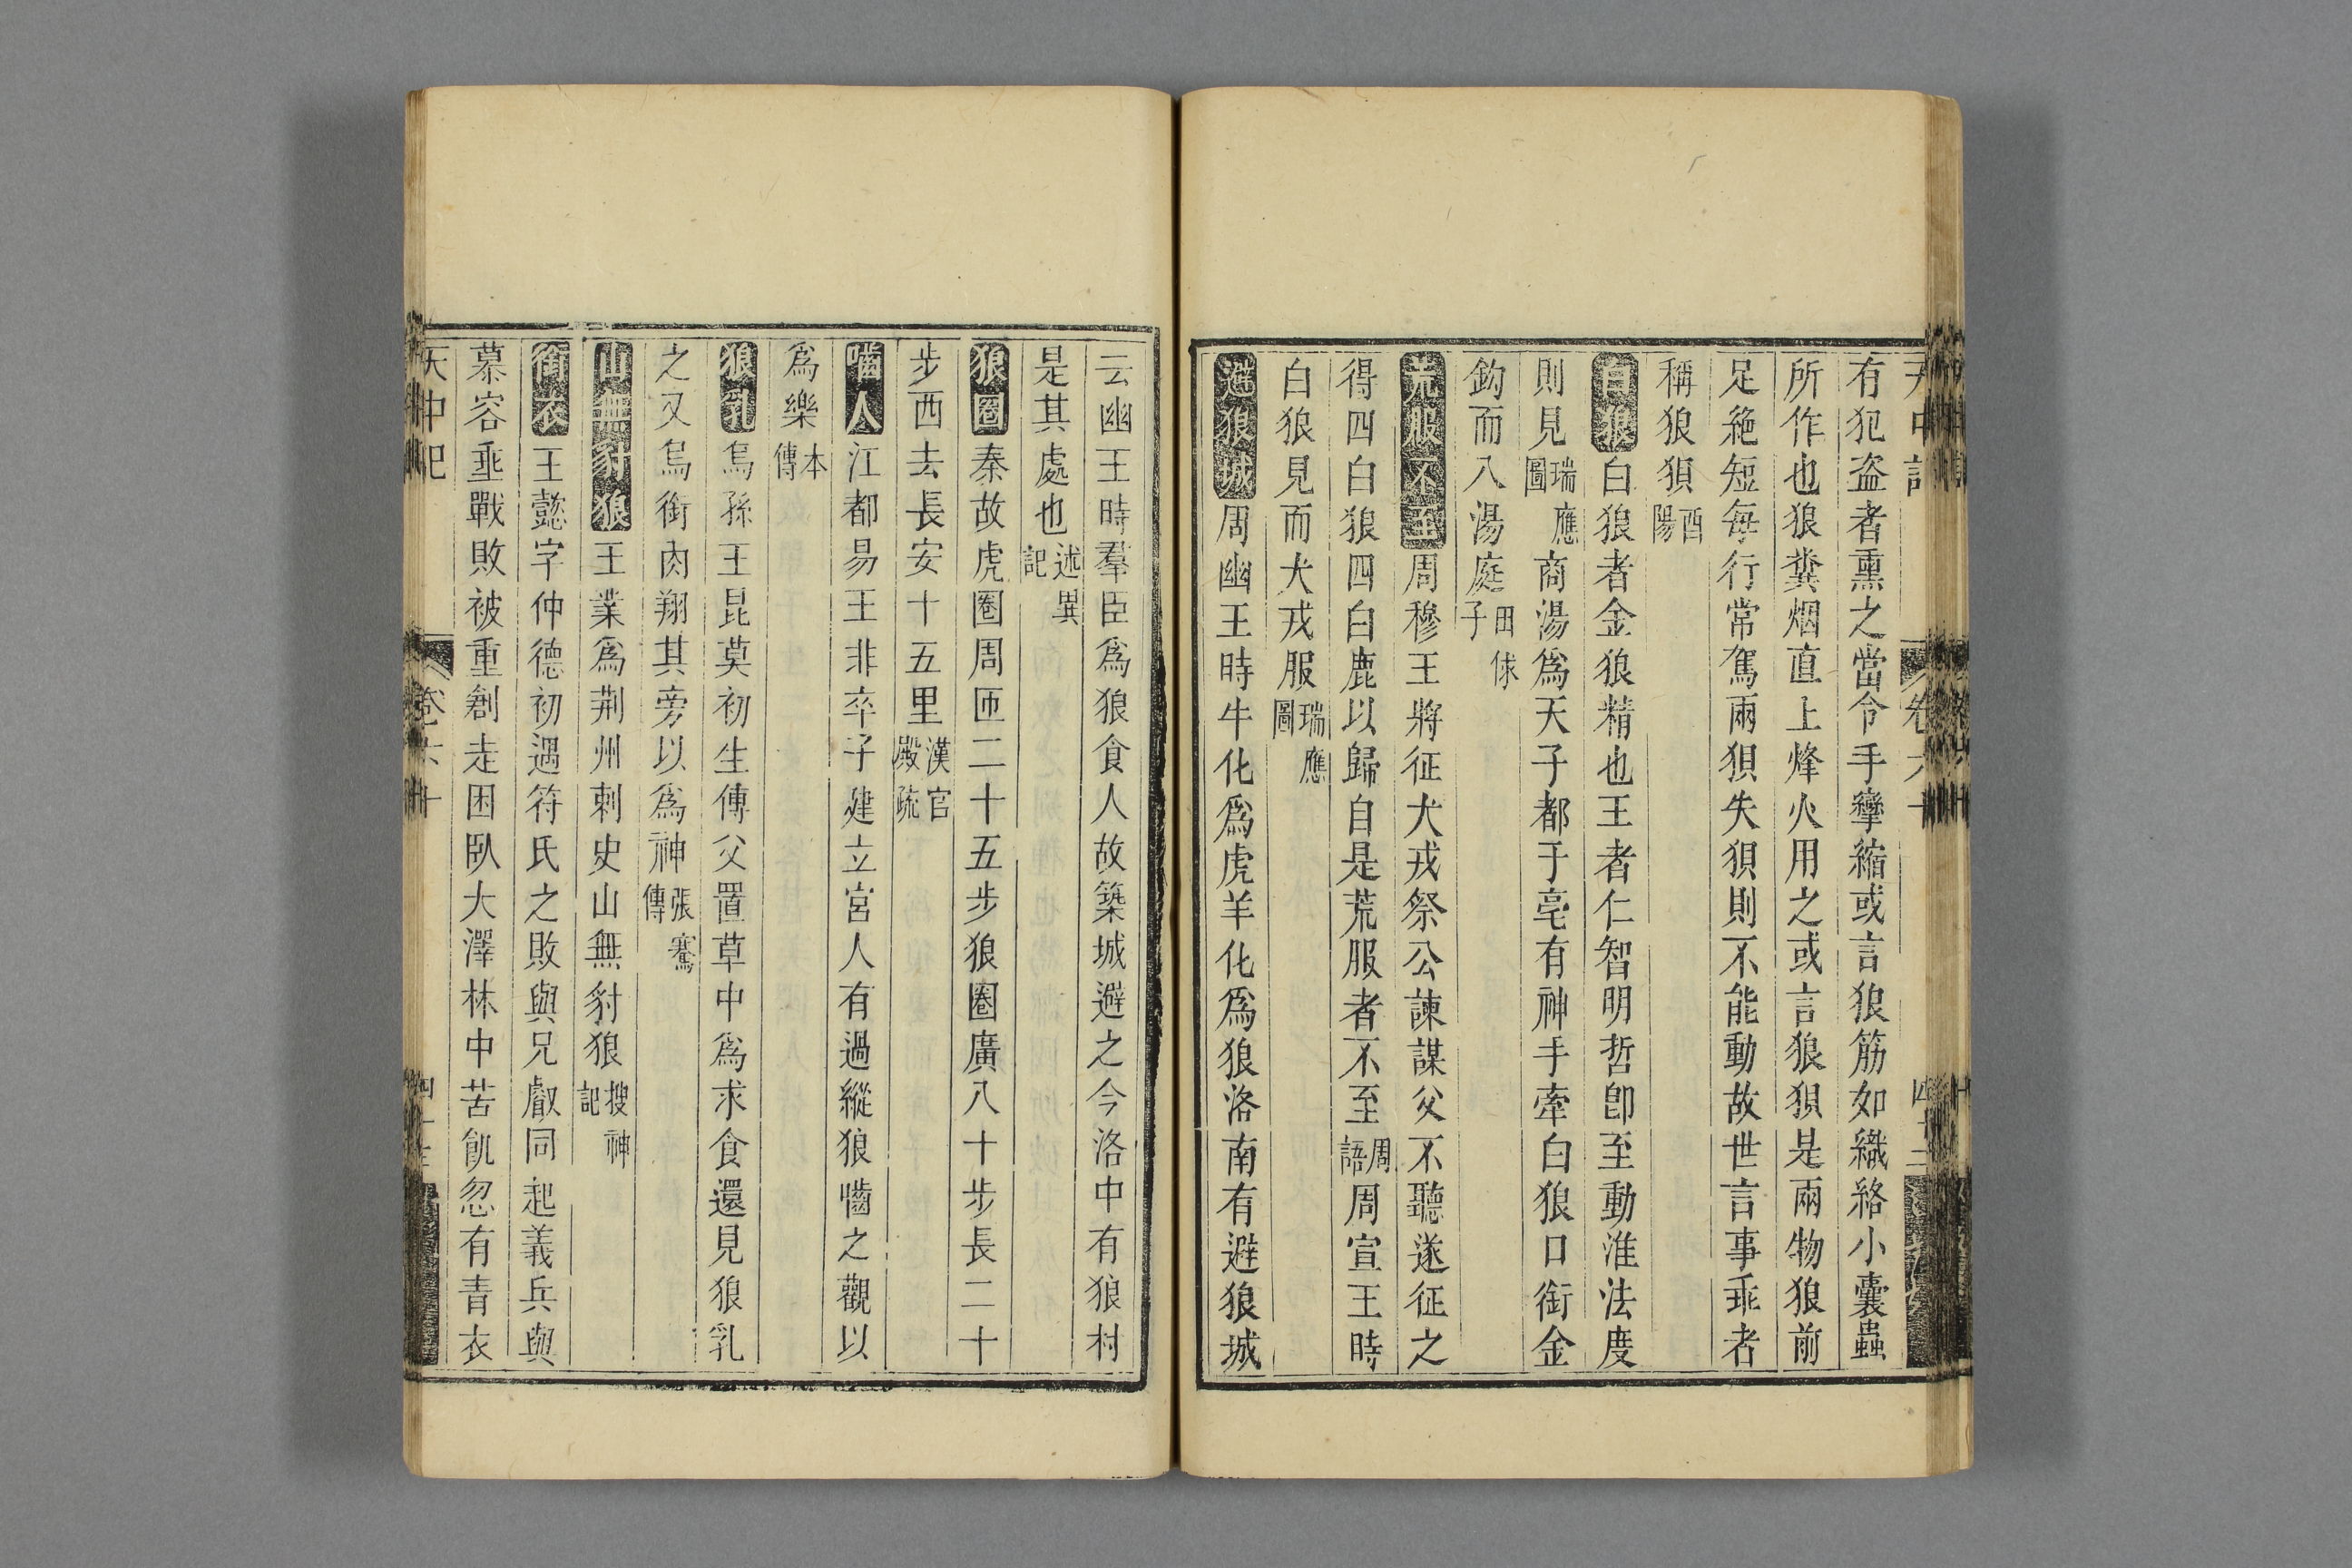 天中記 卷六十 四十二
有犯盗者熏之當令手攣縮或言狼筋如織絡小囊蟲
所作也狼糞烟直上烽火用之或言狼狽是兩物狼前
足絶短每行常駕兩狽失狽則不能動故世言事乖者
稱狼狽酉陽
白狼白狼者金狼精也王者仁智明哲卽至動准法度
則見瑞應圖商湯爲天子都于亳有神手牽白狼口銜金
鈎而入湯庭田俅子
荒服不至周穆王將征犬戎祭公諫謀父不聽遂征之
得四白狼四白鹿以歸自是荒服者不至周語周宣王時
白狼見而犬戎服瑞應圖
避狼城周幽王時牛化爲虎羊化爲狼洛南有避狼城
云幽王時羣臣爲狼食人故築城避之今洛中有狼村
是其處也述異記
狼圈秦故虎圈周匝二十五步狼圈廣八十步長二十
步西去長安十五里漢官殿疏
嚙人江都易王非卒子建立宮人有過縱狼嚙之觀以
爲樂本傳
狼乳烏孫王昆莫初生傅父置草中爲求食還見狼乳
之又烏銜肉翔其旁以爲神張騫傳
山無豺狼王業爲荆州刺史山無豺狼搜神記
銜衣王懿字仲德初遇符氏之敗與兄叡同起義兵與
慕容垂戰敗被重創走困臥大澤林中苦飢忽有青衣
天中記 卷六十 四十三